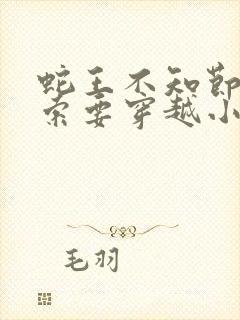 蛇王不知节
索要穿越小
毛羽